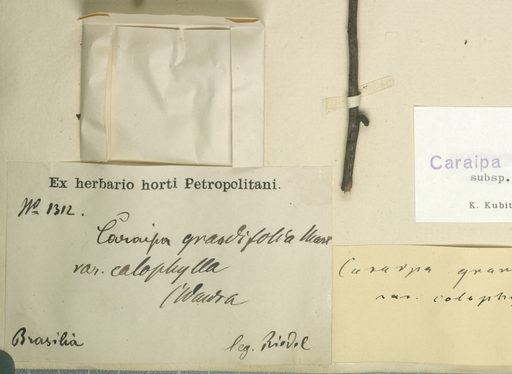 Ex herbario horti Petropolitani.
No 1312.
Caraipa grandifolia Mart
var. calophylla
(Wawra
Brasilia
leg. Riedel
Caraipa
subsp.
K. Kubit
Caraipa gran
var. caloph